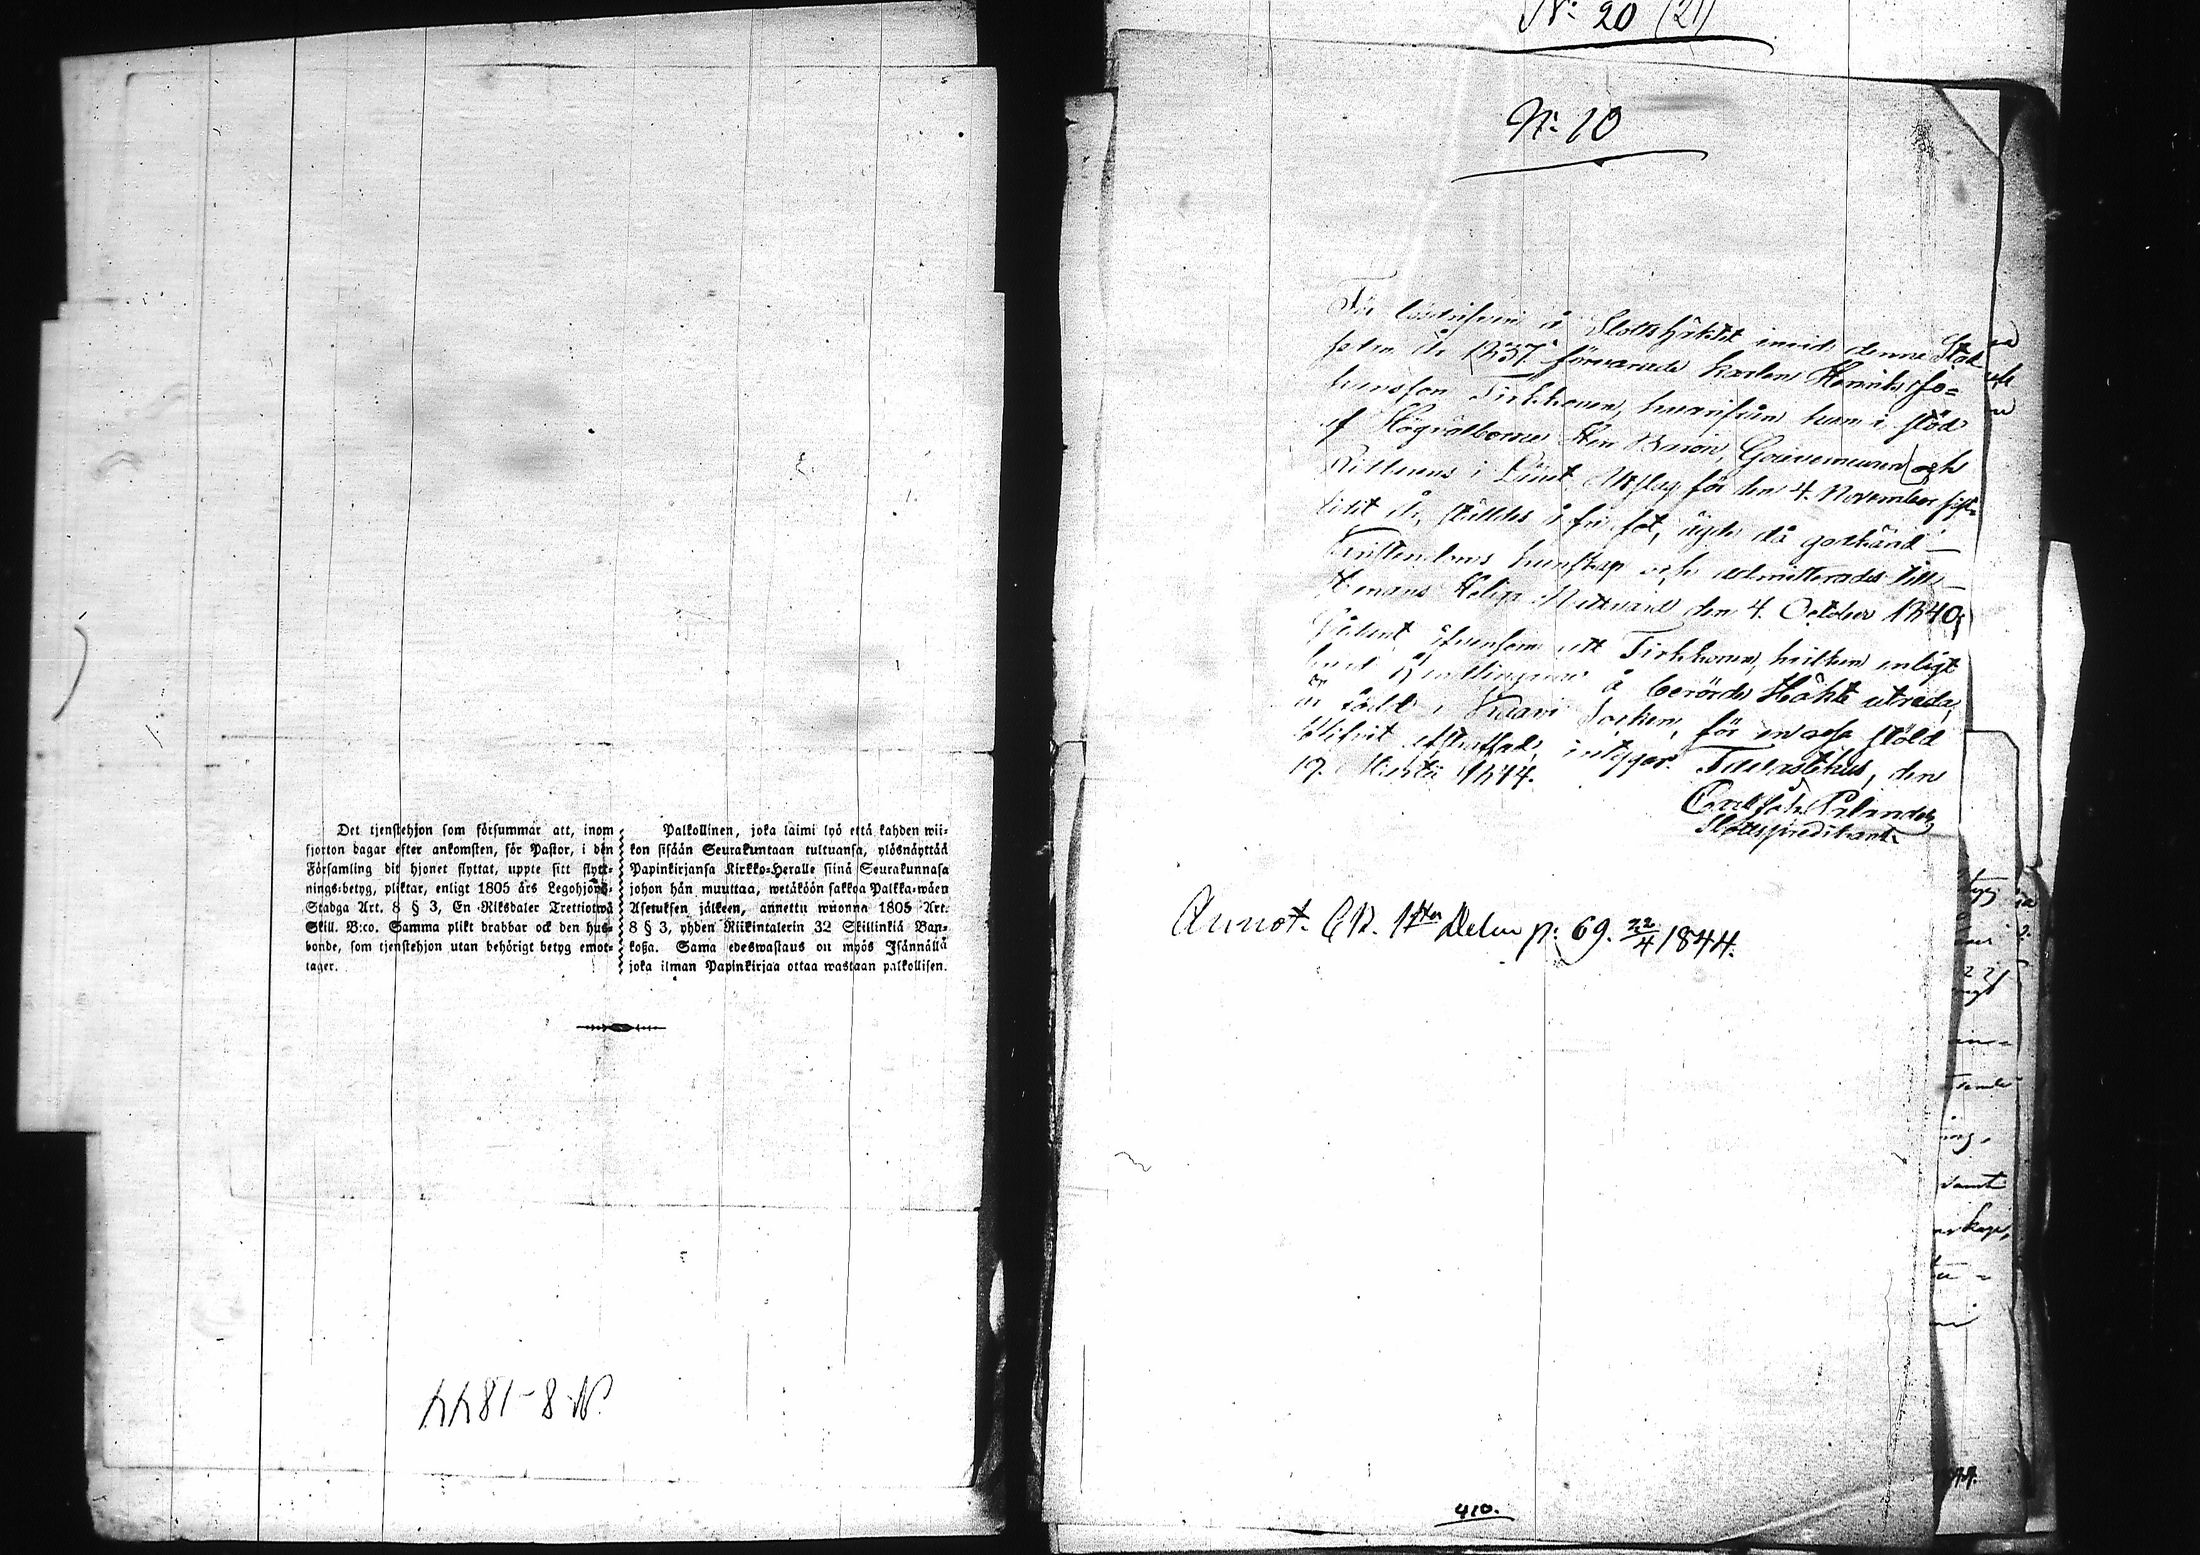 Det tjenstehjon som försummar att, inom
fjorton dagar efter ankomsten, för Pastor, i den
Församling dit hjonet flyttat, uppte sitt flytt-
nings-betyg, pliktar, enligt 1805 års Legohjons-
Stadga Art. 8 § 3, En Riksdaler Trettiotwå
Skill. B:co. Samma plikt drabbar ock den hus-
bonde, som tjenstehjon utan behörigt betyg emot-
tager.
Palkollinen, joka laimi lyö että kahden wii-
kon sisään Seurakuntaan tultuansa, ylösnäyttää
Papinkirjansa Kirkko-Heralle siinä Seurakunnasa
johon hän muuttaa, wetäköön sakkoa Palkka-wäen
Asetuksen jälkeen, annettu wuonna 1805 Art.
8 § 3, yhden Riikintalerin 32 Skillinkiä Ban-
koßa. Sama edeswastaus on myös Isännällä
joka ilman Papinkirjaa ottaa wastaan palkollisen.
N. 8-1844
N: 20 (21)
N: 10
För å Slottshäktet invid denne Stad
sedan år 1837 förvarade karlen Henrik Jo=
hansson Tirkkonen, hvarifrån han i stöd
af Högvälborne Herr Baron, Gouverneuren och
Riddarens i Länet Utslag för den 4. November sist=
lidit år, ställdes å fri fot, ägde då godkänd
Christendoms kunskap och admitterades till
Herrans Heliga Nattvard den 4. October 1840;
äfvensom att Tirkkonen, hvilken enligt
hvad å berörde Häkte utreda,
är född i Kaavi Socken, för stöld
blifvit afstraffad, intygar. Tavastehus, den
19. Martii 1844.
Carl Joh. Palander
Slottspredikant.
Annot. CB. 1sta Delen p: 69. 22/4 1844.
410.